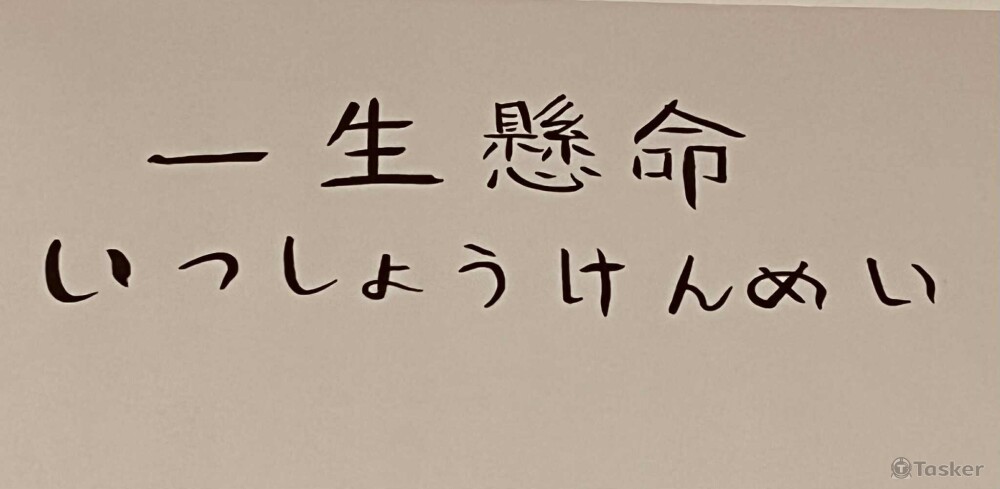 一生懸命
いっしょうけんめい
Tasker